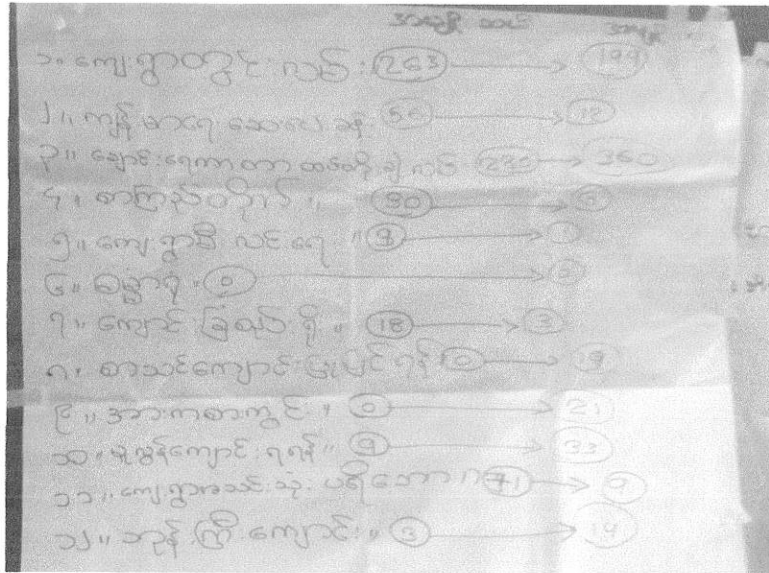 အမျိုးသမီး အမျိုးသား
၁။ ကျေးရွာတွင်းလမ်း 263 → 199
၂။ ကျန်းမာရေး ဆေးပေးခန်း 56 → 12
၃။ ချောင်းရေကာတာ 230 → 360
၄။ စာကြည့်တိုက် ။ 90 →
၅။ ကျေးရွာမီးလင်းရေး ။ 9 →
၆။ ။ 0 →
၇။ ကျောင်းခြံစည်းရိုး ။ 18 → 3
၈။ စာသင်ကျောင်းပြုပြင်ရန် 0 → 19
၉။ အားကစားကွင်း ။ 0 → 21
၁၀။ မူလွန်ကျောင်းရရန် ။ 9 → 33
၁၁။ ကျေးရွာအသင်းသုံး ပရိဘောဂ 71 → 9
၁၂။ ဘုန်းကြီးကျောင်း ။ 3 → 14